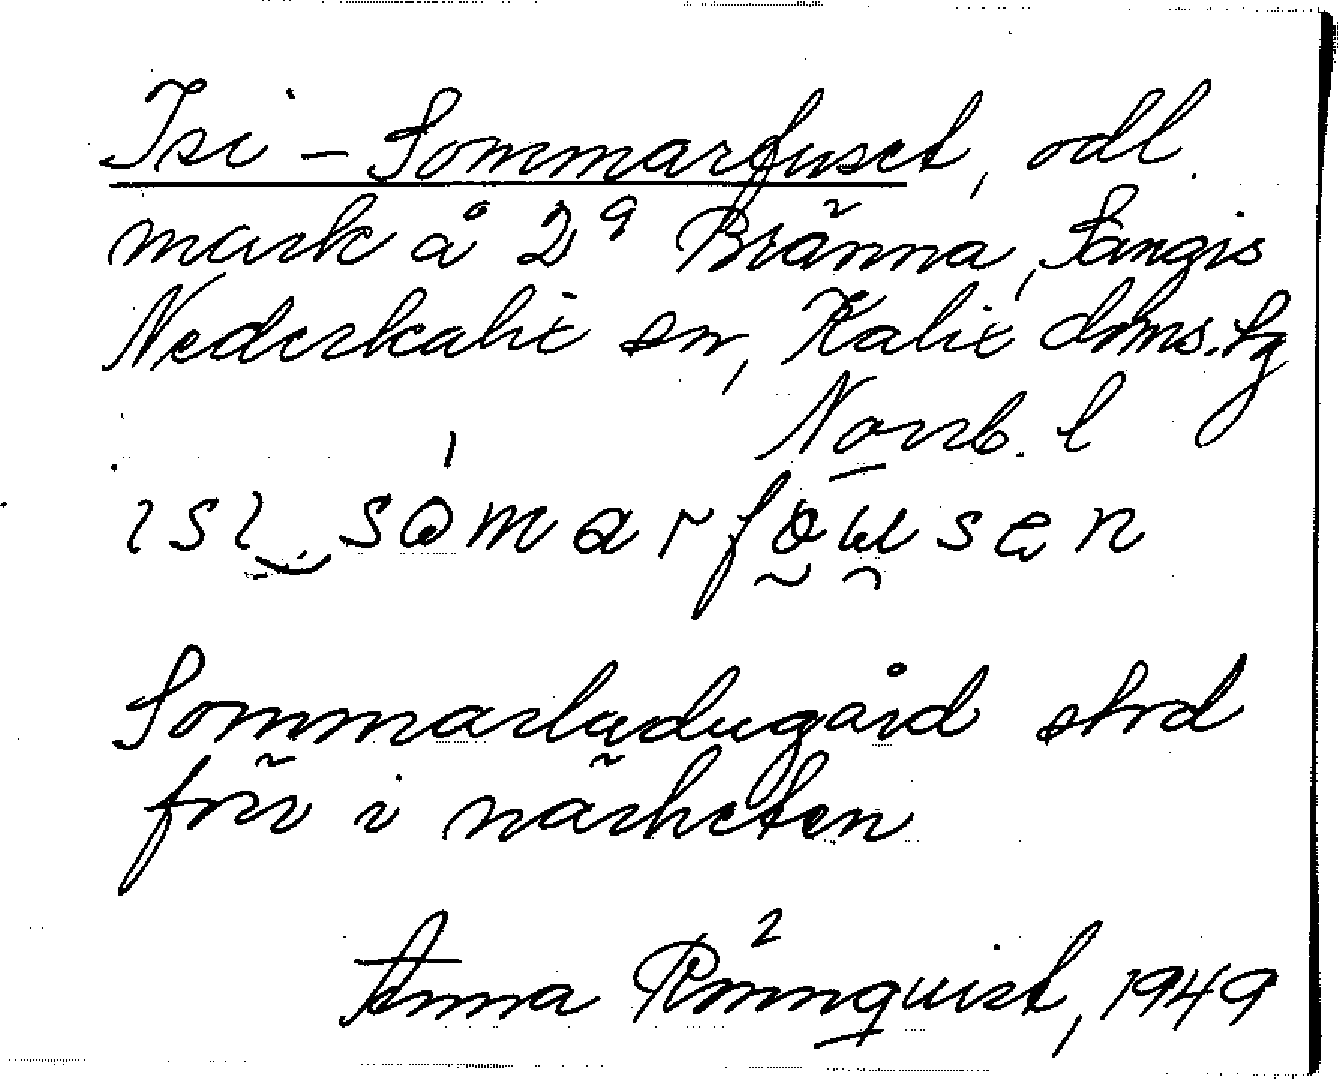 Isi-Sommarfuset, odl.
mark å 2⁹ Bränna, Sangis
Nederkalix sn, Kalix doms.
Norrb. l
Sommarladugård stod
förr i närheten
Anna Rönnquist, 1949